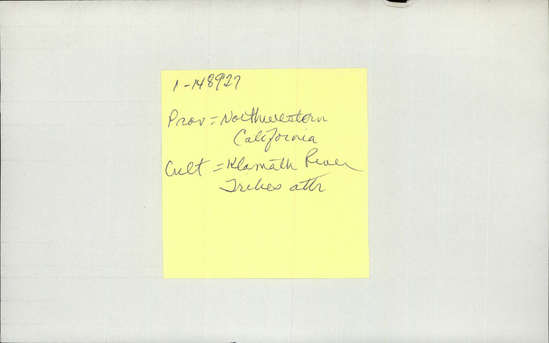 1-148927
Prov = Northwestern
California
Cult = Klamath River
Tribes attr